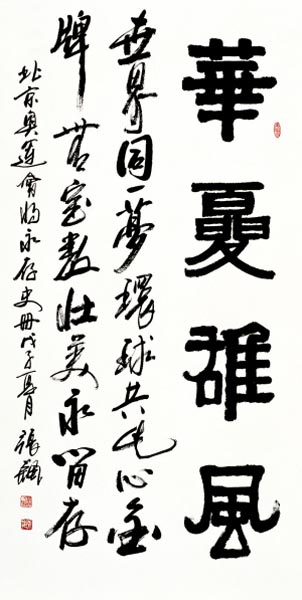 華夏雄風
世界同一夢環球共此心金
牌無定數壯美永留存
北京奥運會将永存史册戊子夏月 張飆